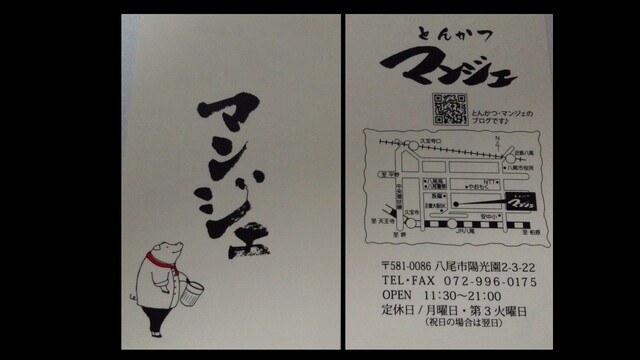 マンジェ
とんかつ
マンジェ
とんかつ・マンジェの
ブログです♪
久宝寺口
近鉄八尾
八尾市役所
至 平野
中央環状線
八尾高
八尾警察
NTT
やおもく
とんかつ
マンジェ
久宝寺
安中小
至 天王寺
JR八尾
至 堺
至 柏原
〒581-0086 八尾市陽光園2-3-22
TEL・FAX 072-996-0175
OPEN 11:30〜21:00
定休日/月曜日・第3火曜日
(祝日の場合は翌日)